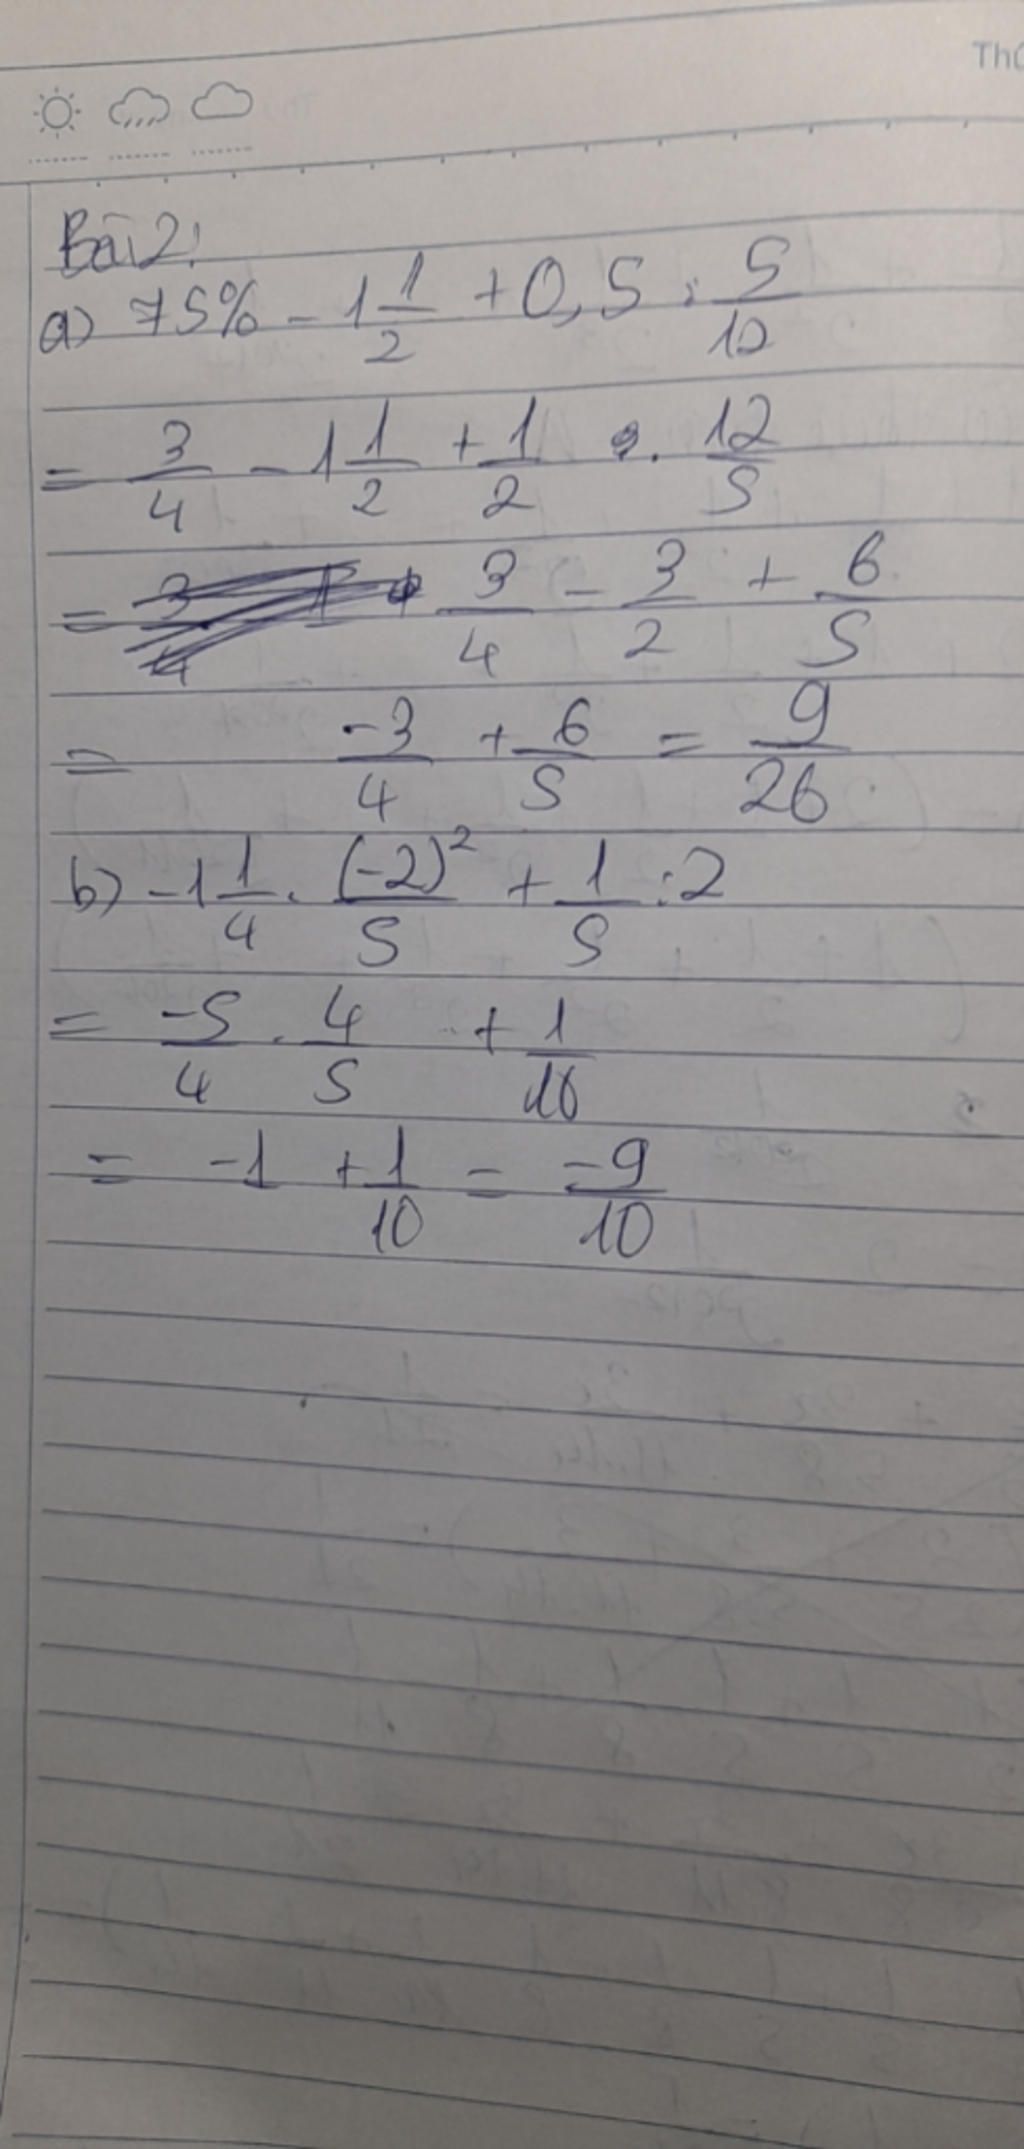 Th
Bài 2:
a) 75% - 1 1/2 + 0,5 : 5/12
= 3/4 - 1 1/2 + 1/2 . 12/5
= 3/4 - 3/2 + 6/5
= -3/4 + 6/5 = 9/26
b) -1 1/4 . (-2)²/5 + 1/5 : 2
= -5/4 . 4/5 + 1/10
= -1 + 1/10 = -9/10